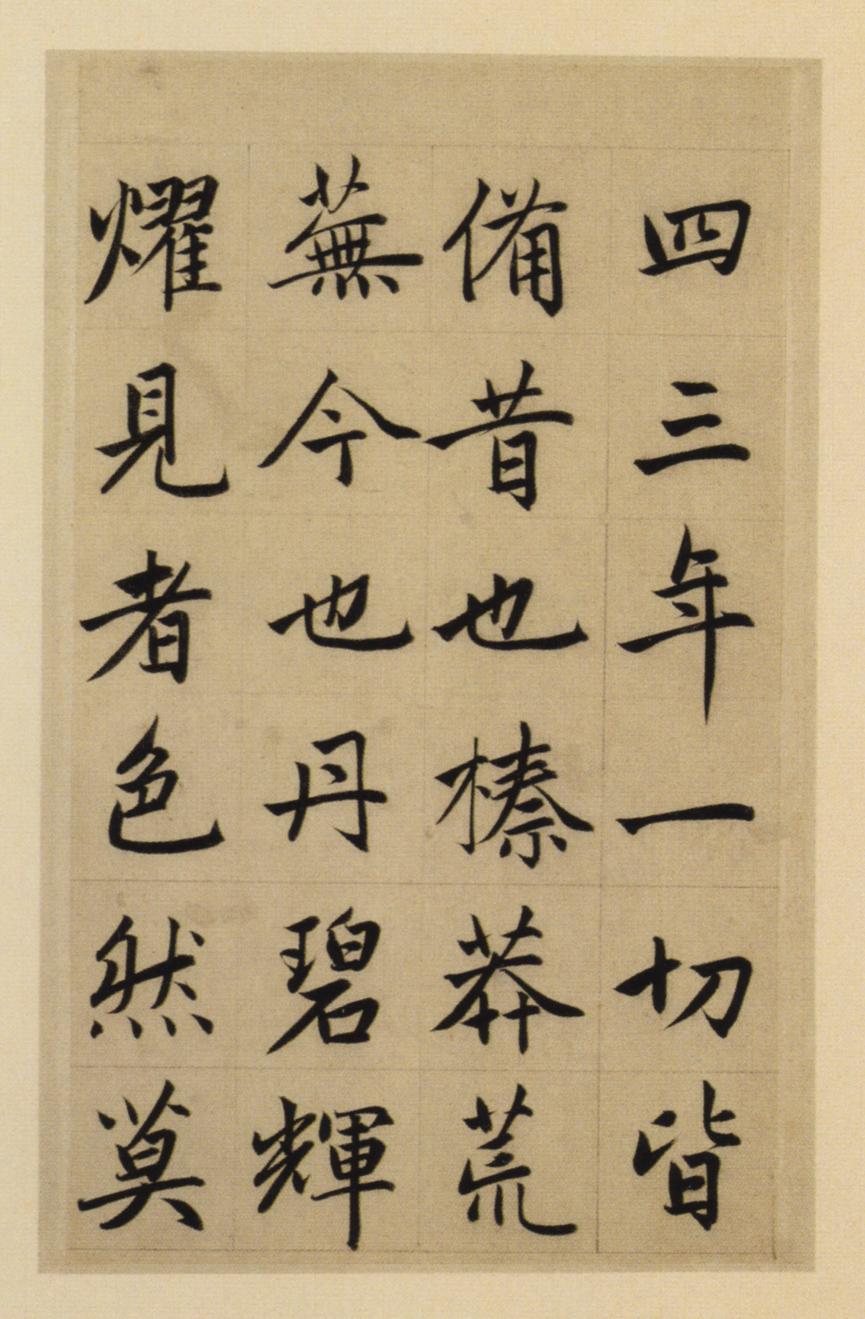 四三年一切皆
備昔也榛莽荒
蕪今也丹碧輝
耀見者色然莫